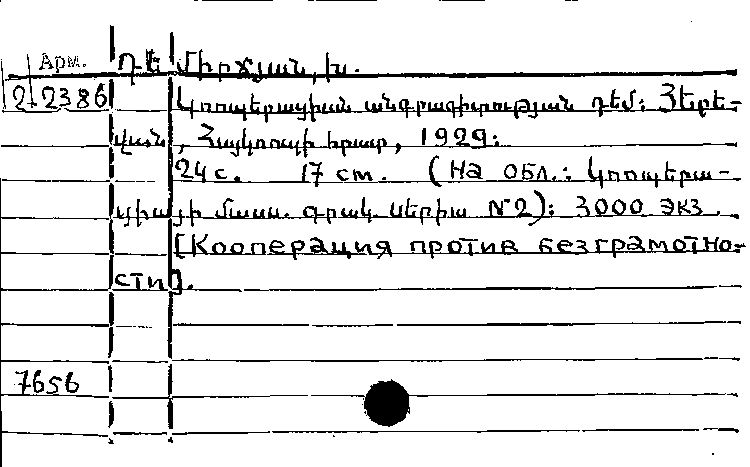 Арм. ԴԵ Միրզյան, Խ.
2-2386 Կոոպերացիան անգրագիտության դեմ: Յերե-
վան, Հայկոոպի հրատ, 1929:
24 с. 17 cm. (На обл.: Կոոպերա-
ցիայի մասս. գրակ. սերիա №2): 3000 экз
[Кооперация против безграмотно-
сти].
7656